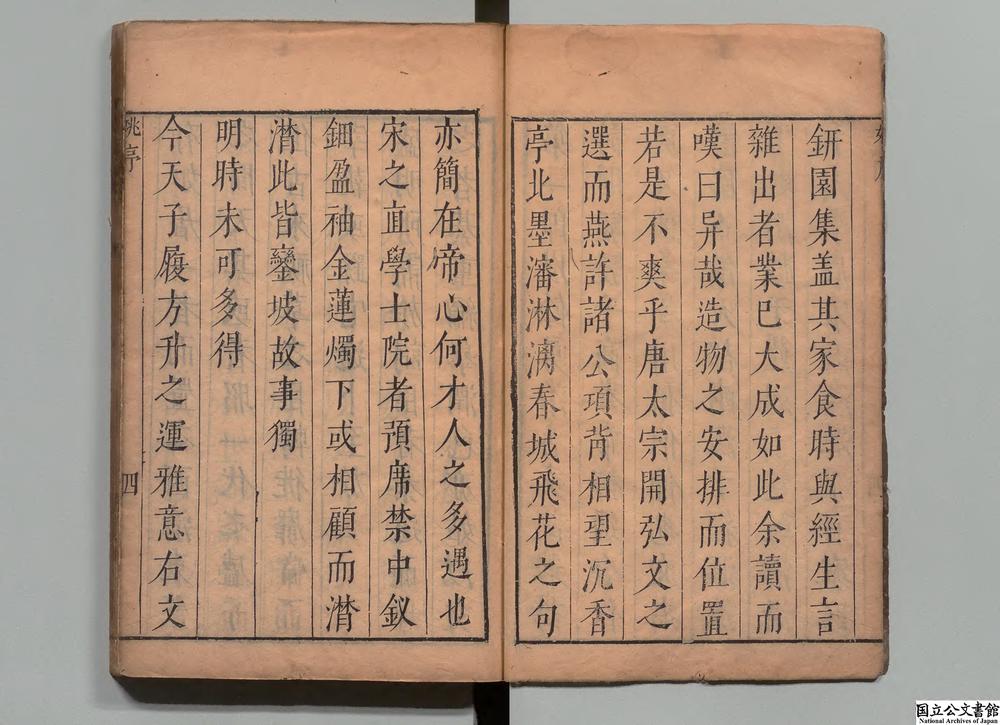 鈃園集盖其家食時與經生言
雜出者業巳大成如此余讀而
嘆曰异哉造物之安排而位置
若是不爽乎唐太宗開弘文之
選而燕許諸公項背相望沉香
亭北墨瀋淋漓春城飛花之句
亦簡在帝心何才人之多遇也
宋之直學士院者預席禁中釵
鈿盈袖金蓮燭下或相顧而潸
潸此皆鑾坡故事獨
明時未可多得
今天子履方升之運雅意右文
亭
四
国立公文書館
National Archives of Japan